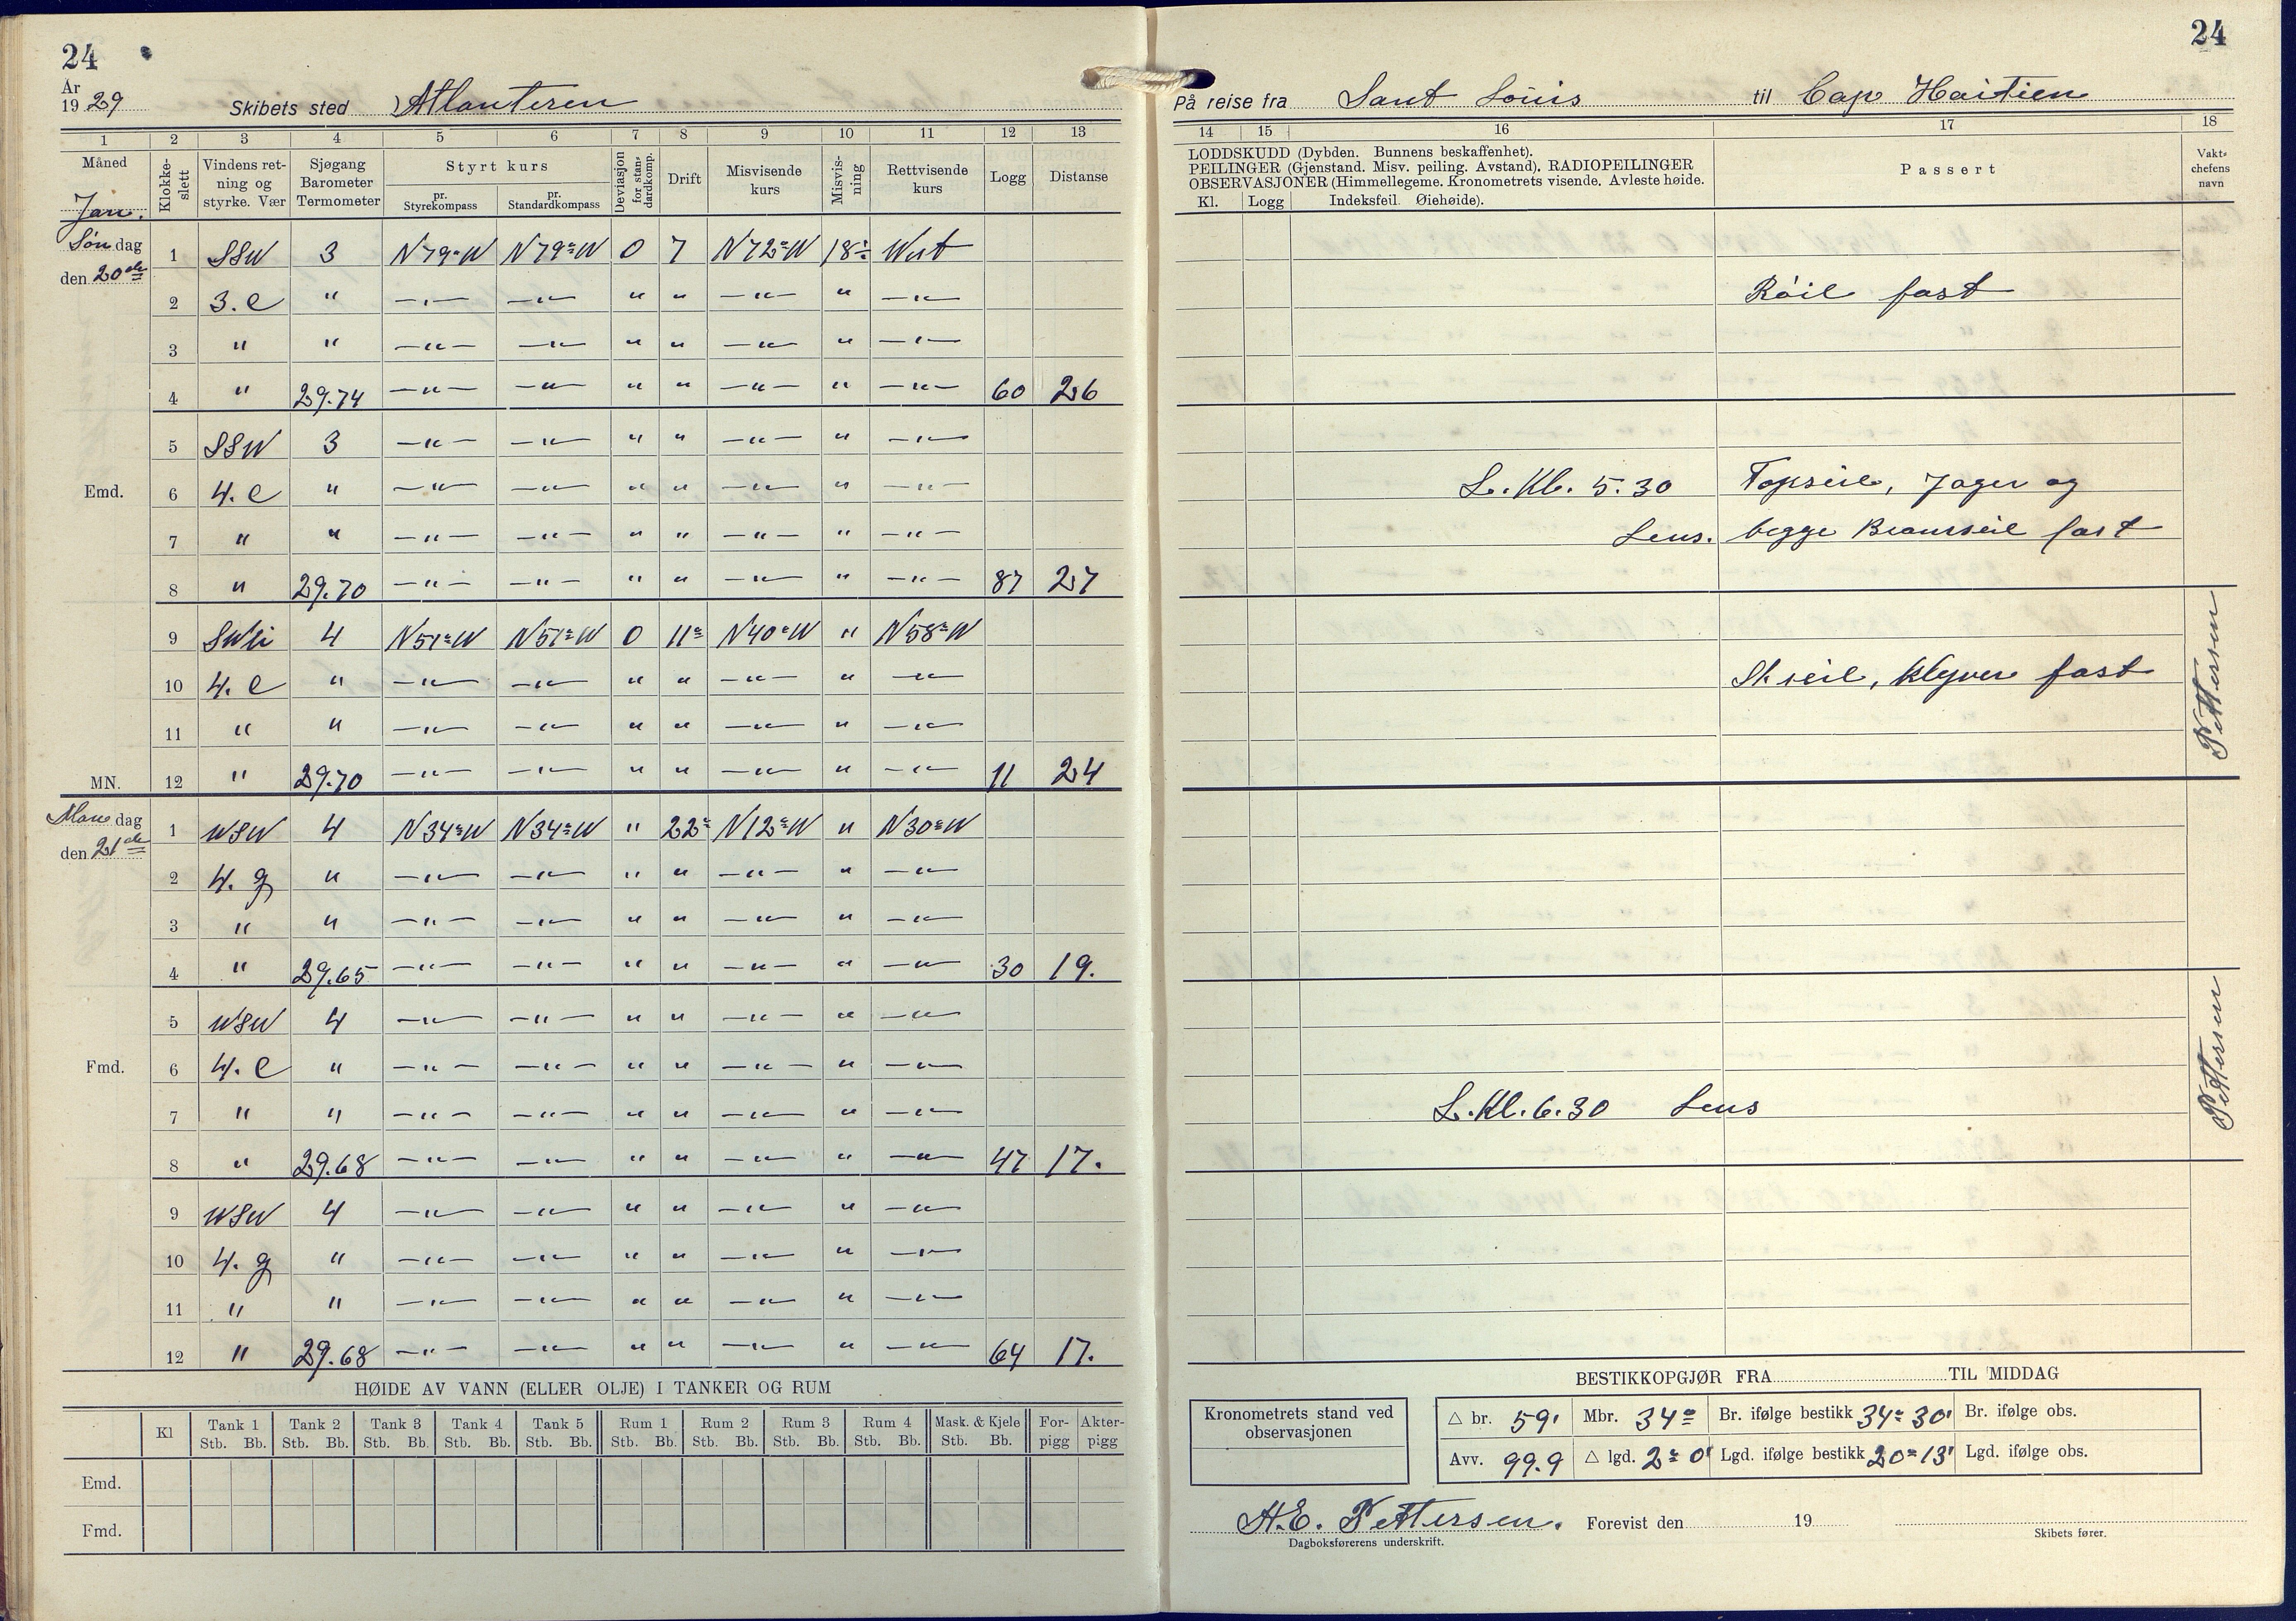 24
År
1929 Skibets sted Atlanteren
1 2 3 4 5 6 7 8 9 10 11 12 13
Måned Klokkeslett Vindens retning og styrke. Vær Sjøgang Barometer Termometer Styrt kurs pr. Styrekompass pr. Standardkompass Deviasjon for standardkomp. Drift Misvisende kurs Misvisning Rettvisende kurs Logg Distanse
Jan.
Søndag 1 SSW 3 N79°W N79°W 0 7 N72°W 18÷ West
den 20de
2 3. c " —"— —"— " " —"— " —"—
3 " " —"— —"— " " —"— " —"—
4 " 29.74 —"— —"— " " —"— " —"— 60 26
5 SSW 3 —"— —"— " " —"— " —"—
Emd. 6 4. c " —"— —"— " " —"— " —"—
7 " " —"— —"— " " —"— " —"—
8 " 29.70 —"— —"— " " —"— " —"— 87 27
9 4 N51°W N51°W 0 11° N40°W " N58°W
10 4. c " —"— —"— " " —"— " —"—
11 " " —"— —"— " " —"— " —"—
MN. 12 " 29.70 —"— —"— " " —"— " —"— 11 24
Manedag 1 WSW 4 N34°W N34°W " 22° N12°W " N30°W
den 21de
2 4. g " —"— —"— " " —"— " —"—
3 " " —"— —"— " " —"— " —"—
4 " 29.65 —"— —"— " " —"— " —"— 30 19.
5 WSW 4 —"— —"— " " —"— " —"—
Fmd. 6 4. c " —"— —"— " " —"— " —"—
7 " " —"— —"— " " —"— " —"—
8 " 29.68 —"— —"— " " —"— " —"— 47 17.
9 WSW 4 —"— —"— " " —"— " —"—
10 4. g " —"— —"— " " —"— " —"—
11 " " —"— —"— " " —"— " —"—
12 " 29.68 —"— —"— " " —"— " —"— 64 17.
HØIDE AV VANN (ELLER OLJE) I TANKER OG RUM
Kl Tank 1 Tank 2 Tank 3 Tank 4 Tank 5 Rum 1 Rum 2 Rum 3 Rum 4 Mask. & Kjele For-pigg Akter-pigg
Stb. Bb. Stb. Bb. Stb. Bb. Stb. Bb. Stb. Bb. Stb. Bb. Stb. Bb. Stb. Bb. Stb. Bb. Stb. Bb.
Emd.
Fmd.
24
På reise fra Sant Louis til Cap Haitien
14 15 16 17 18
LODDSKUDD (Dybden. Bunnens beskaffenhet).
PEILINGER (Gjenstand. Misv. peiling. Avstand). RADIOPEILINGER
OBSERVASJONER (Himmellegeme. Kronometrets visende. Avleste høide.
Kl. Logg Indeksfeil. Øiehøide).
Passert
Vakt-
chefens
navn
Röil fast
L. Kl. 5.30 Topseil, Jager og
Lens. begge Bramseil fast
St seil, Klyver fast
Pettersen
L. Kl. 6.30 Lens
Pettersen
BESTIKKOPGJØR FRA TIL MIDDAG
Kronometrets stand ved
observasjonen
△ br. 59' Mbr. 34° Br. ifølge bestikk 34° 30' Br. ifølge obs.
Avv. 99.9 △ lgd. 2° 0' Lgd. ifølge bestikk 20° 13' Lgd. ifølge obs.
H.E. Pettersen. Forevist den 19
Dagboksførerens underskrift. Skibets fører.